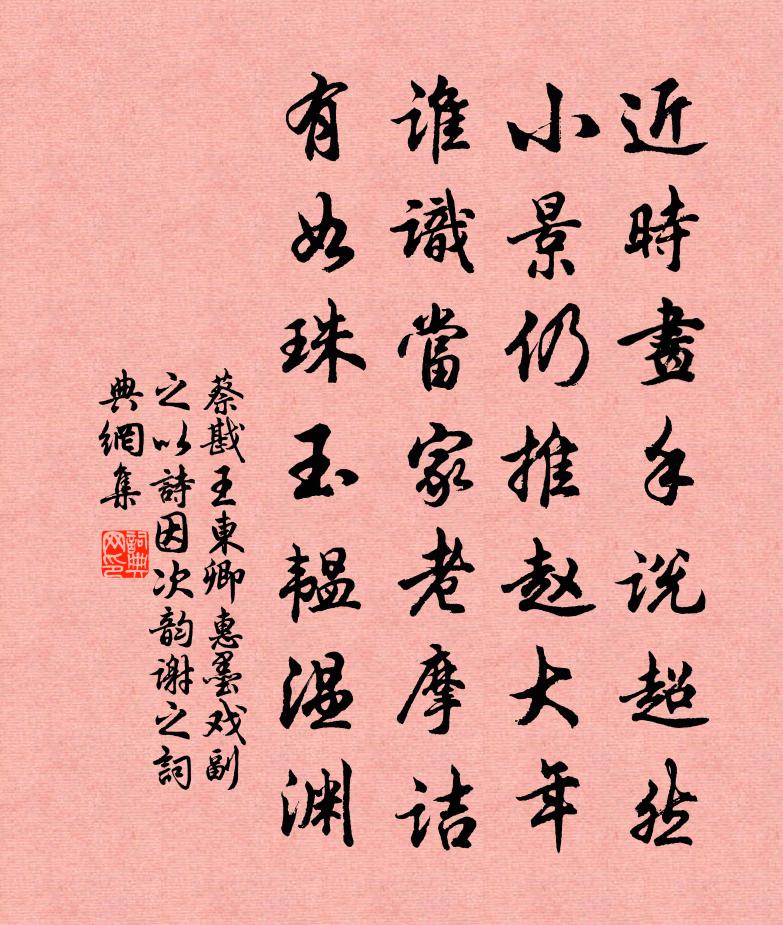 近時畫手说超然
小景仍推赵大年
誰識當家老摩诘
有如珠玉韫温渊
蔡戡王東卿惠墨戏副
之以詩因次韵谢之詞
典網集
詞典网印